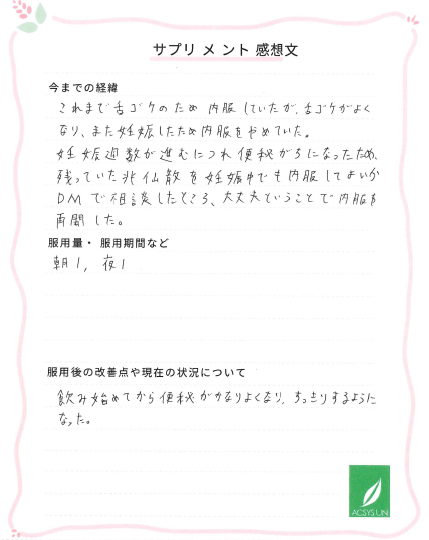 サプリメント感想文
今までの経緯
これまで舌ゴケのため内服していたが、舌ゴケがよく
なり、また妊娠したため内服をやめていた。
妊娠週数が進むにつれ便秘がちになったため、
残っていた兆仙散を妊娠中でも内服してよいか
DMで相談したところ、大丈夫ということで内服を
再開した。
服用量・服用期間など
朝1, 夜1
服用後の改善点や現在の状況について
飲み始めてから便秘がかなりよくなり、すっきりするように
なった。
ACSYS UN